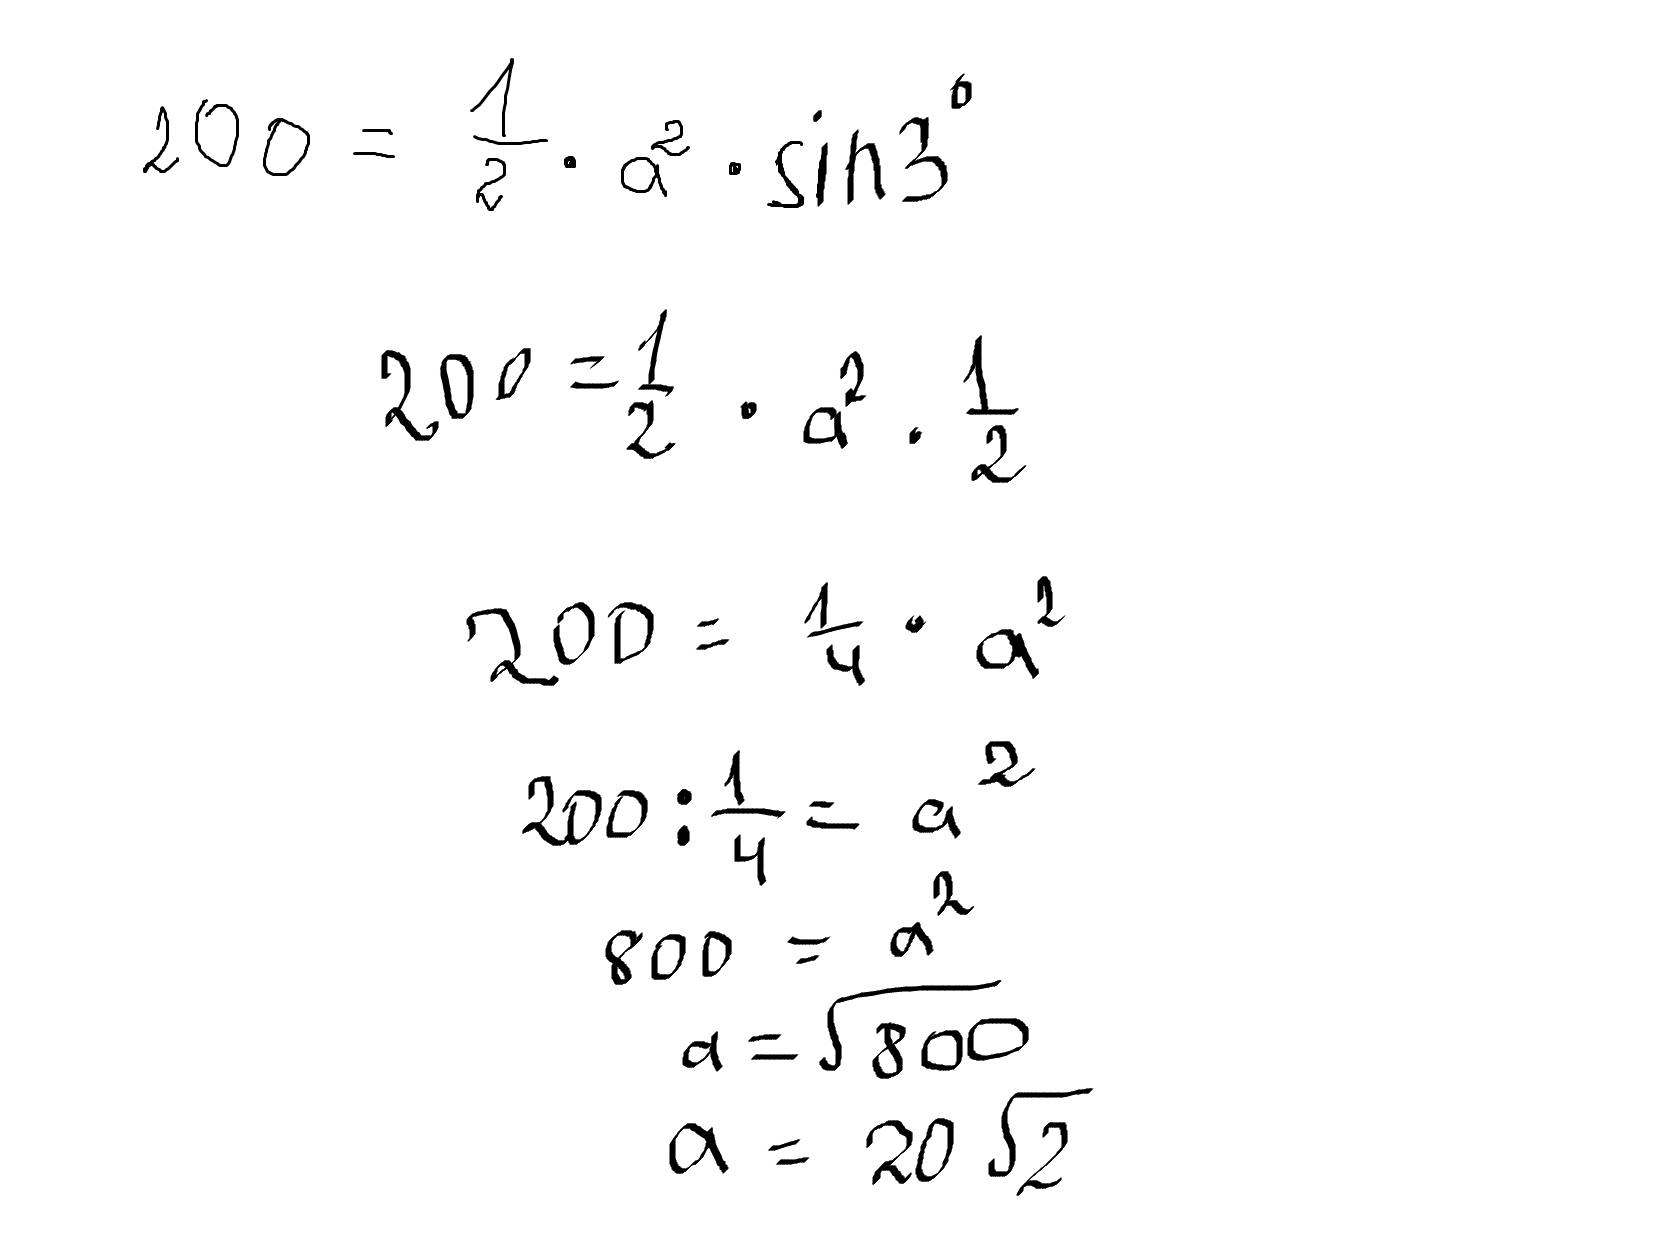 200 = 1/2 · a² · sin3⁰
200 = 1/2 · a² · 1/2
200 = 1/4 · a²
200 : 1/4 = a²
800 = a²
a = √800
a = 20√2